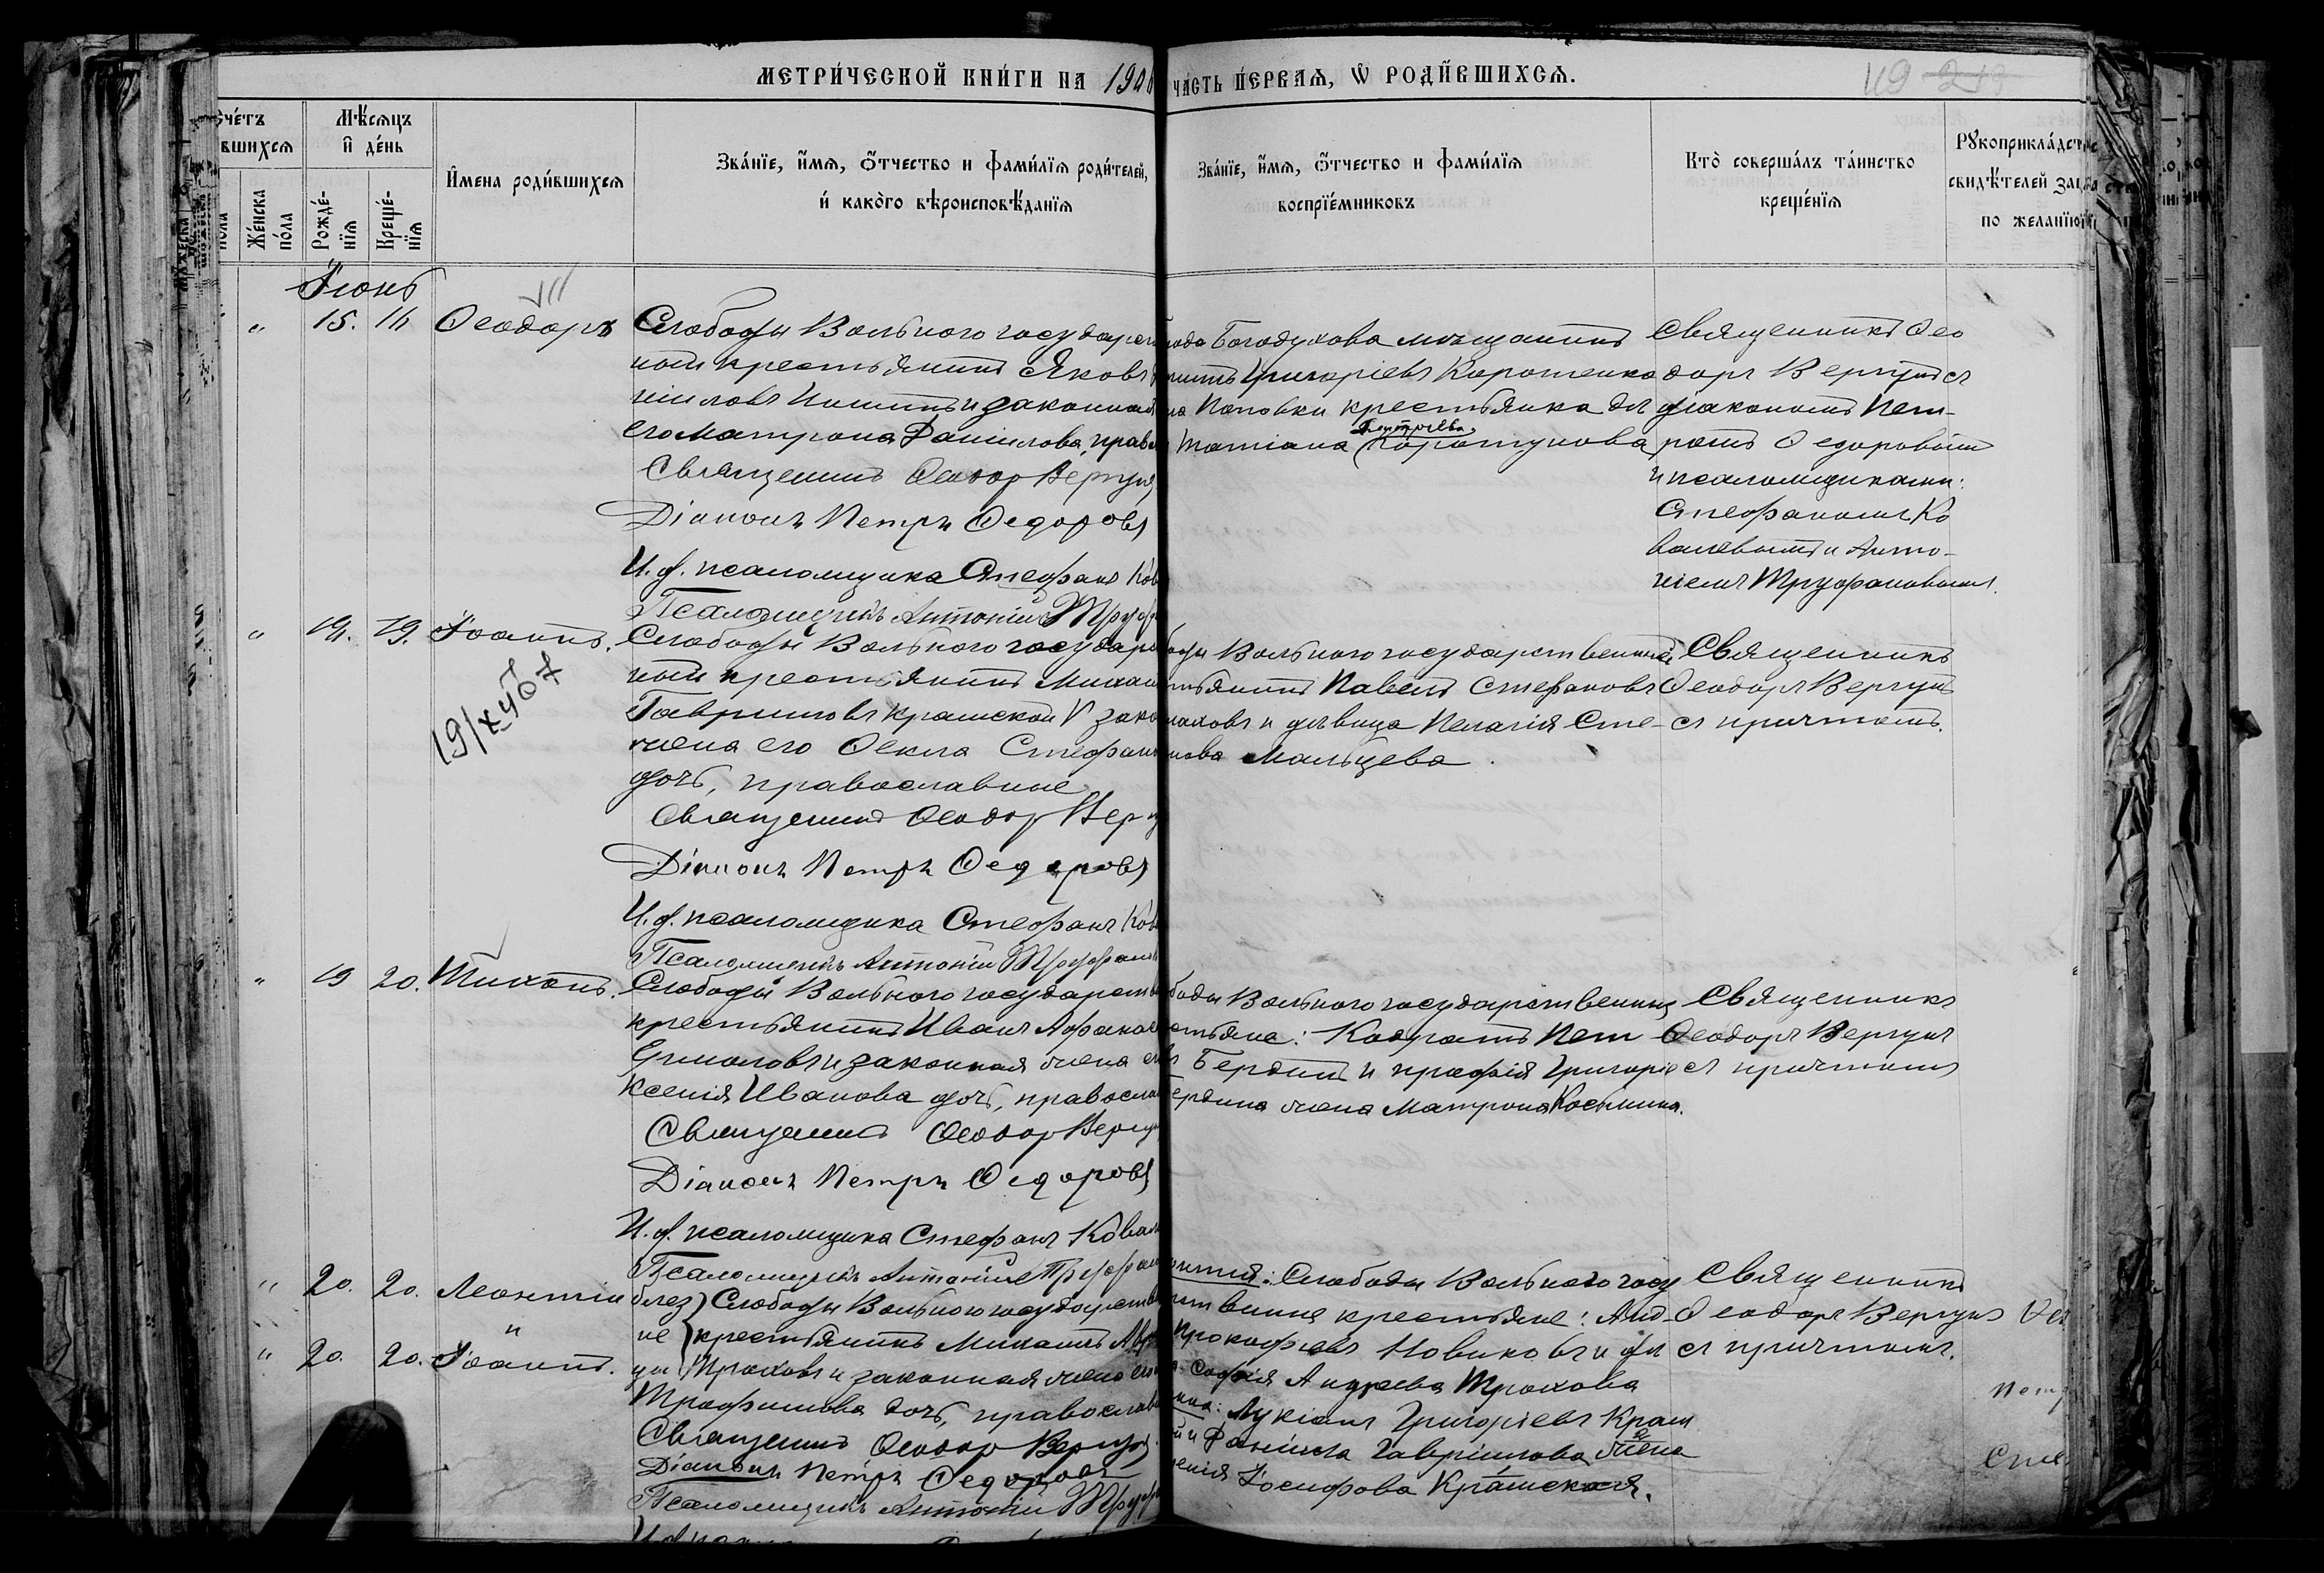 МЕТРИ́ЧЕСКОЙ КНИ́ГИ НА 190
ЧА́СТЬ ПЕ́РВАЯ, Ѡ҆ РОДИ́ВШИХСЯ.
49
Сче́тъ
вшихся
Мѣ́сяцъ
и҆ де́нь
пола
Же́нска по́ла
Рожде́нїя
Креще́нїя
И҆мена роди́вшихся
Зва́нїе, и҆́мя, ѻ҆́тчество и фами́лїя роди́телей,
и҆ како́го вѣроисповѣ́данїя
Зва́нїе, и҆́мя, ѻ҆́тчество и фами́лїя
воспрїе́мниковъ
Кто̀ соверша́лъ та́инство
креще́нїя
Рꙋкоприкла́дст
свидѣ́телей запи
по жела́нїю
Іюнь
" 15. 16 Ѳеодоръ
Слободы Вольного государст
ный крестьянинъ Яковъ
ииловъ и законная
его Матрона Даніилова, прав
Священникъ Ѳеодор Вергун
Діаконъ Петръ Ѳедоровъ
И. д. псаломщика Стефанъ Ков
Псаломщикъ Антоній Труф
рода Богодухова мѣщанинъ
Григоріевъ Коротенко
Поповки крестьянка дѣ
Дмитріева
Татіана Коротунова
Священникъ Ѳео
доръ Вергунъ съ
діакономъ Пет-
ромъ Ѳедоровымъ
и псаломщиками:
Стефаномъ Ко
валевымъ и Анто-
ніемъ Труфановымъ.
" 19. 19. Іоаннъ.
19/X 40 г
Слободы Вольного государст
ный крестьянинъ Михаи
Гавриловъ Крамской и зако
жена его Ѳекла Стефан
дочь, православные
Священникъ Ѳеодор Верг
Діаконъ Петръ Ѳедоровъ
И. д. псаломщика Стефанъ Ков
Псаломщикъ Антоній Труфано
боды Вольного государственный
тьянинъ Павелъ Стефановъ
лаховъ и дѣвица Пелагія Сте-
нова Мальцева.
Священникъ
Ѳеодоръ Вергунъ
съ причтомъ.
" 19 20. Тихонъ.
Слободы Вольного государств
крестьянинъ Иванъ Афанась
Ермоловъ и законная жена его
Ксенія Иванова дочь, правосла
Священникъ Ѳеодор Вергу
Діаконъ Петръ Ѳедоровъ
И. д. псаломщика Стефанъ Ковал
Псаломщикъ Антоній Труфан
боды Вольного государственные
стьяне: Кодратъ Пет
Бердинъ и Григоріе
ердина жена Матрона Косьмина.
Священникъ
Ѳеодоръ Вергунъ
съ причтомъ
" 20. 20. Леонтій
"
" 20. 20. Іоаннъ.
близ
не
цы
Слободы Вольного государств
крестьянинъ Михаилъ
Троховъ и законная жена его
Трофимова дочь, православ
Священникъ Ѳеодор Вергун
Діаконъ Петръ Ѳедоровъ
Псаломщикъ Антоній Труф
Слободы Вольного госу
ственные крестьяне: Анд-
Прокофьевъ Новиковъ и дѣ
Софія Андреева Трохова
Лукіанъ Григоріевъ Крам
й и Даніила Гавріилова жена
Іосифова Крамская.
Священникъ
Ѳеодоръ Вергунъ
съ причтомъ.
Петр
Сте